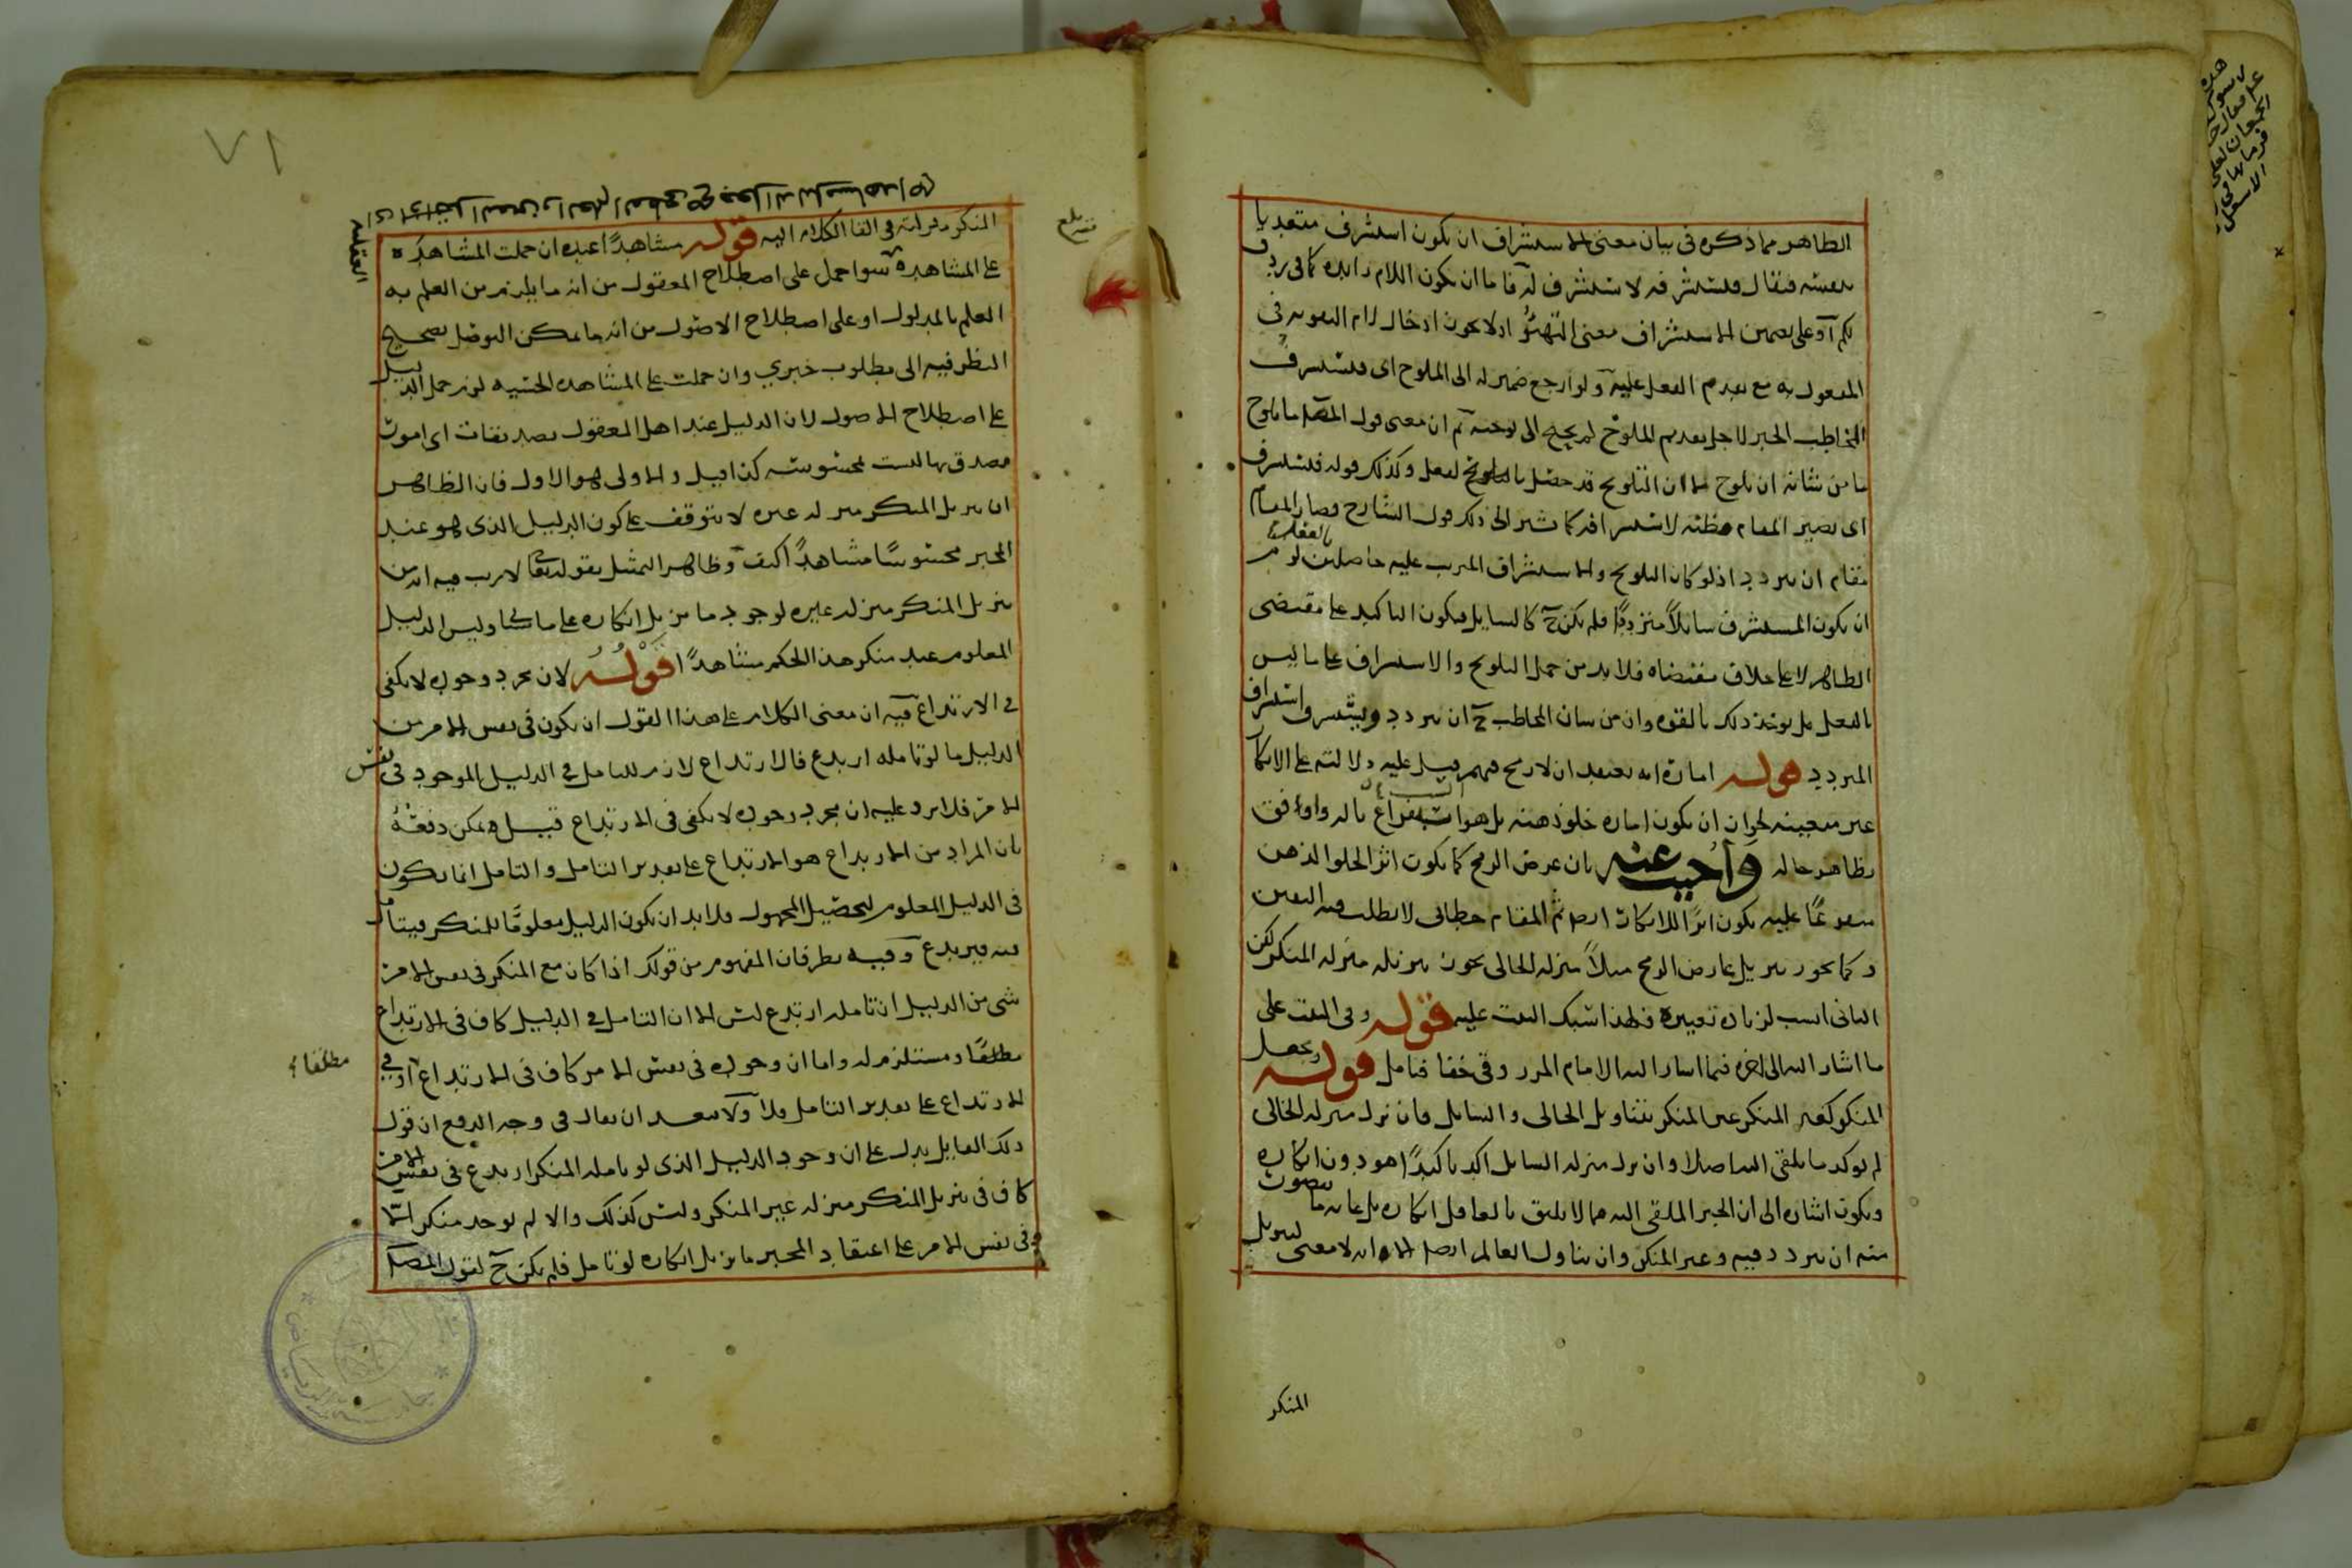 الظاهر مما ذكره فى بيان معنى الاستشراف ان يكون استشرف متعديا
بنفسه فيقال فيستشرفه لا يستشرف له فاما ان يكون اللام زايده كما فى ردف
لكم او على تضمين الاستشراف معنى التهيؤ اذ لا يجوز ادخال لام التقويه فى
المفعول به مع تقدم الفعل عليه ولو ارجع ضمير له الى الملوح اى فيستشرف
المخاطب الخبر لاجل تقديم الملوح لم يحتج الى توجيه ثم ان معنى قول المص ما يلوح
ما من شانه ان يلوح لا ان التلويح قد حصل بالفعل وكذلك قوله فيستشرف
اى يصير المقام مظنة لاستشرافه كما يشير الى ذلك قول الشارح فصار المقام
مقام ان يتردد اذ لو كان التلويح والاستشراف المرتب عليه حاصلين لزم
بالفعل
ان يكون المستشرف سائلا مترددا فلم يكن ح كالسايل فيكون التاكيد على مقتضى
الظاهر لا على خلاف مقتضاه فلا بد من حمل التلويح والاستشراف على ما ليس
بالفعل بل يوخذ ذلك بالقوه وان من شان المخاطب ح ان يتردد ويستشرف استشراف
المتردد قوله امارة انه يعتقد ان لا رمح فيهم قيل عليه دلالته على الانكار
غير متعينه لجواز ان يكون اماره خلو ذهنه بل هو انسب بفراغ باله واوفق
بظاهر حاله واجيب عنه بان عرض الرمح كما يكون اثر الخلو الذهن
متفرعا عليه يكون اثرا للانكار ايضا ثم المقام خطابى لا يطلب فيه اليقين
وكما يجوز تنزيل عارض الرمح مثلا منزلة الخالى يجوز تنزيله منزلة المنكر لكن
الثانى انسب لزيادة تعييره فلهذا اشبك البيت عليه قوله وفى البيت على
ما اشار اليه الى اخره فيما اشار اليه الامام المرزوقى خفا فتامل قوله ويجعل
المنكر كغير المنكر غير المنكر يتناول الخالى والسايل فان نزل منزلة الخالى
لم يوكد ما يلقى اليه اصلا وان نزل منزلة السايل اكد تاكيدا هو دون انكاره
ويكون اشارة الى ان الخبر الملقى اليه مما لا يليق بالعاقل انكاره بل غاية ما يتصور
منه ان يتردد فيه وغير المنكر وان يتناول العالم ايضا الا انه لا معنى لتنزيل
المنكر
١٧
المنكر منزلته فى القا الكلام اليه قوله مشاهدا عنده ان حملت المشاهدة
على المشاهدة سوا حمل على اصطلاح المعقول من انه ما يلزم من العلم به
العلم بالمدلول او على اصطلاح الاصول من انه ما يمكن التوصل بصحيح
النظر فيه الى مطلوب خبري وان حملت على المشاهده الحسيه لزم حمل الدليل
على اصطلاح الاصول لان الدليل عند اهل المعقول تصديقات اى امور
مصدق بها ليست محسوسة كذا قيل والاولى هو الاول فان الظاهر
ان تنزيل المنكر منزلة غيره لا يتوقف على كون الدليل الذى هو عند
المخبر محسوسا مشاهدا كيف وظاهر التمثيل بقوله تعا لا ريب فيه انه من
تنزيل المنكر منزلة غيره لوجود ما يزيل انكاره على ما وليس الدليل
المعلوم عند منكر هذا الحكم مشاهدا قوله لان مجرد وجوده لا يكفى
فى الارتداع فيه ان معنى الكلام على هذا القول ان يكون فى نفس الامر من
الدليل ما لو تامله ارتدع فالارتداع لازم للتامل فى الدليل الموجود فى نفس
الامر فلا يرد عليه ان مجرد وجوده لا يكفى فى الارتداع قيل ويمكن دفعه
بان المراد من الارتداع هو الارتداع على تقدير التامل والتامل انما يكون
فى الدليل المعلوم لتحصيل المجهول فلا بد ان يكون الدليل معلوما للمنكر فيتامل
فيه فيرتدع وفيه نظر فان المفهوم من قولك اذا كان مع المنكر فى نفس الامر
شى من الدليل ان تامله ارتدع ليس الا ان التامل فى الدليل كاف فى الارتداع
مطلقا ومستلزم له واما ان وجوده فى نفس الامر كاف فى الارتداع او فى
مطلقا
الارتداع على تقدير التامل فلا ولا يبعد ان يقال فى وجه الدفع ان قول
ذلك القايل يدل على ان وجود الدليل الذى لو تامله المنكر ارتدع فى نفس الامر
كاف فى تنزيل المنكر منزلة غير المنكر وليس كذلك والا لم يوجد منكر
وفى نفس الامر على اعتقاد المخبر ما يزيل انكاره لو تامل فلم يكن ح لقول المص